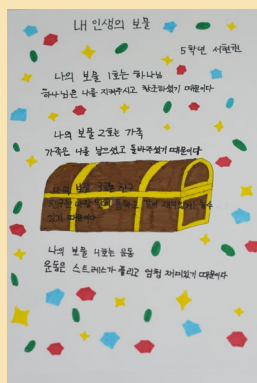 내 인생의 보물
5학년 서현권
나의 보물 1호는 하나님
하나님은 나를 지켜주시고 창조하셨기 때문이다
나의 보물 2호는 가족
가족은 나를 낳으셨고 돌봐주셨기 때문이다
나의 보물 3호는 친구
때문이다
나의 보물 4호는 운동
운동은 스트레스가 풀리고 엄청 재미있기 때문이다